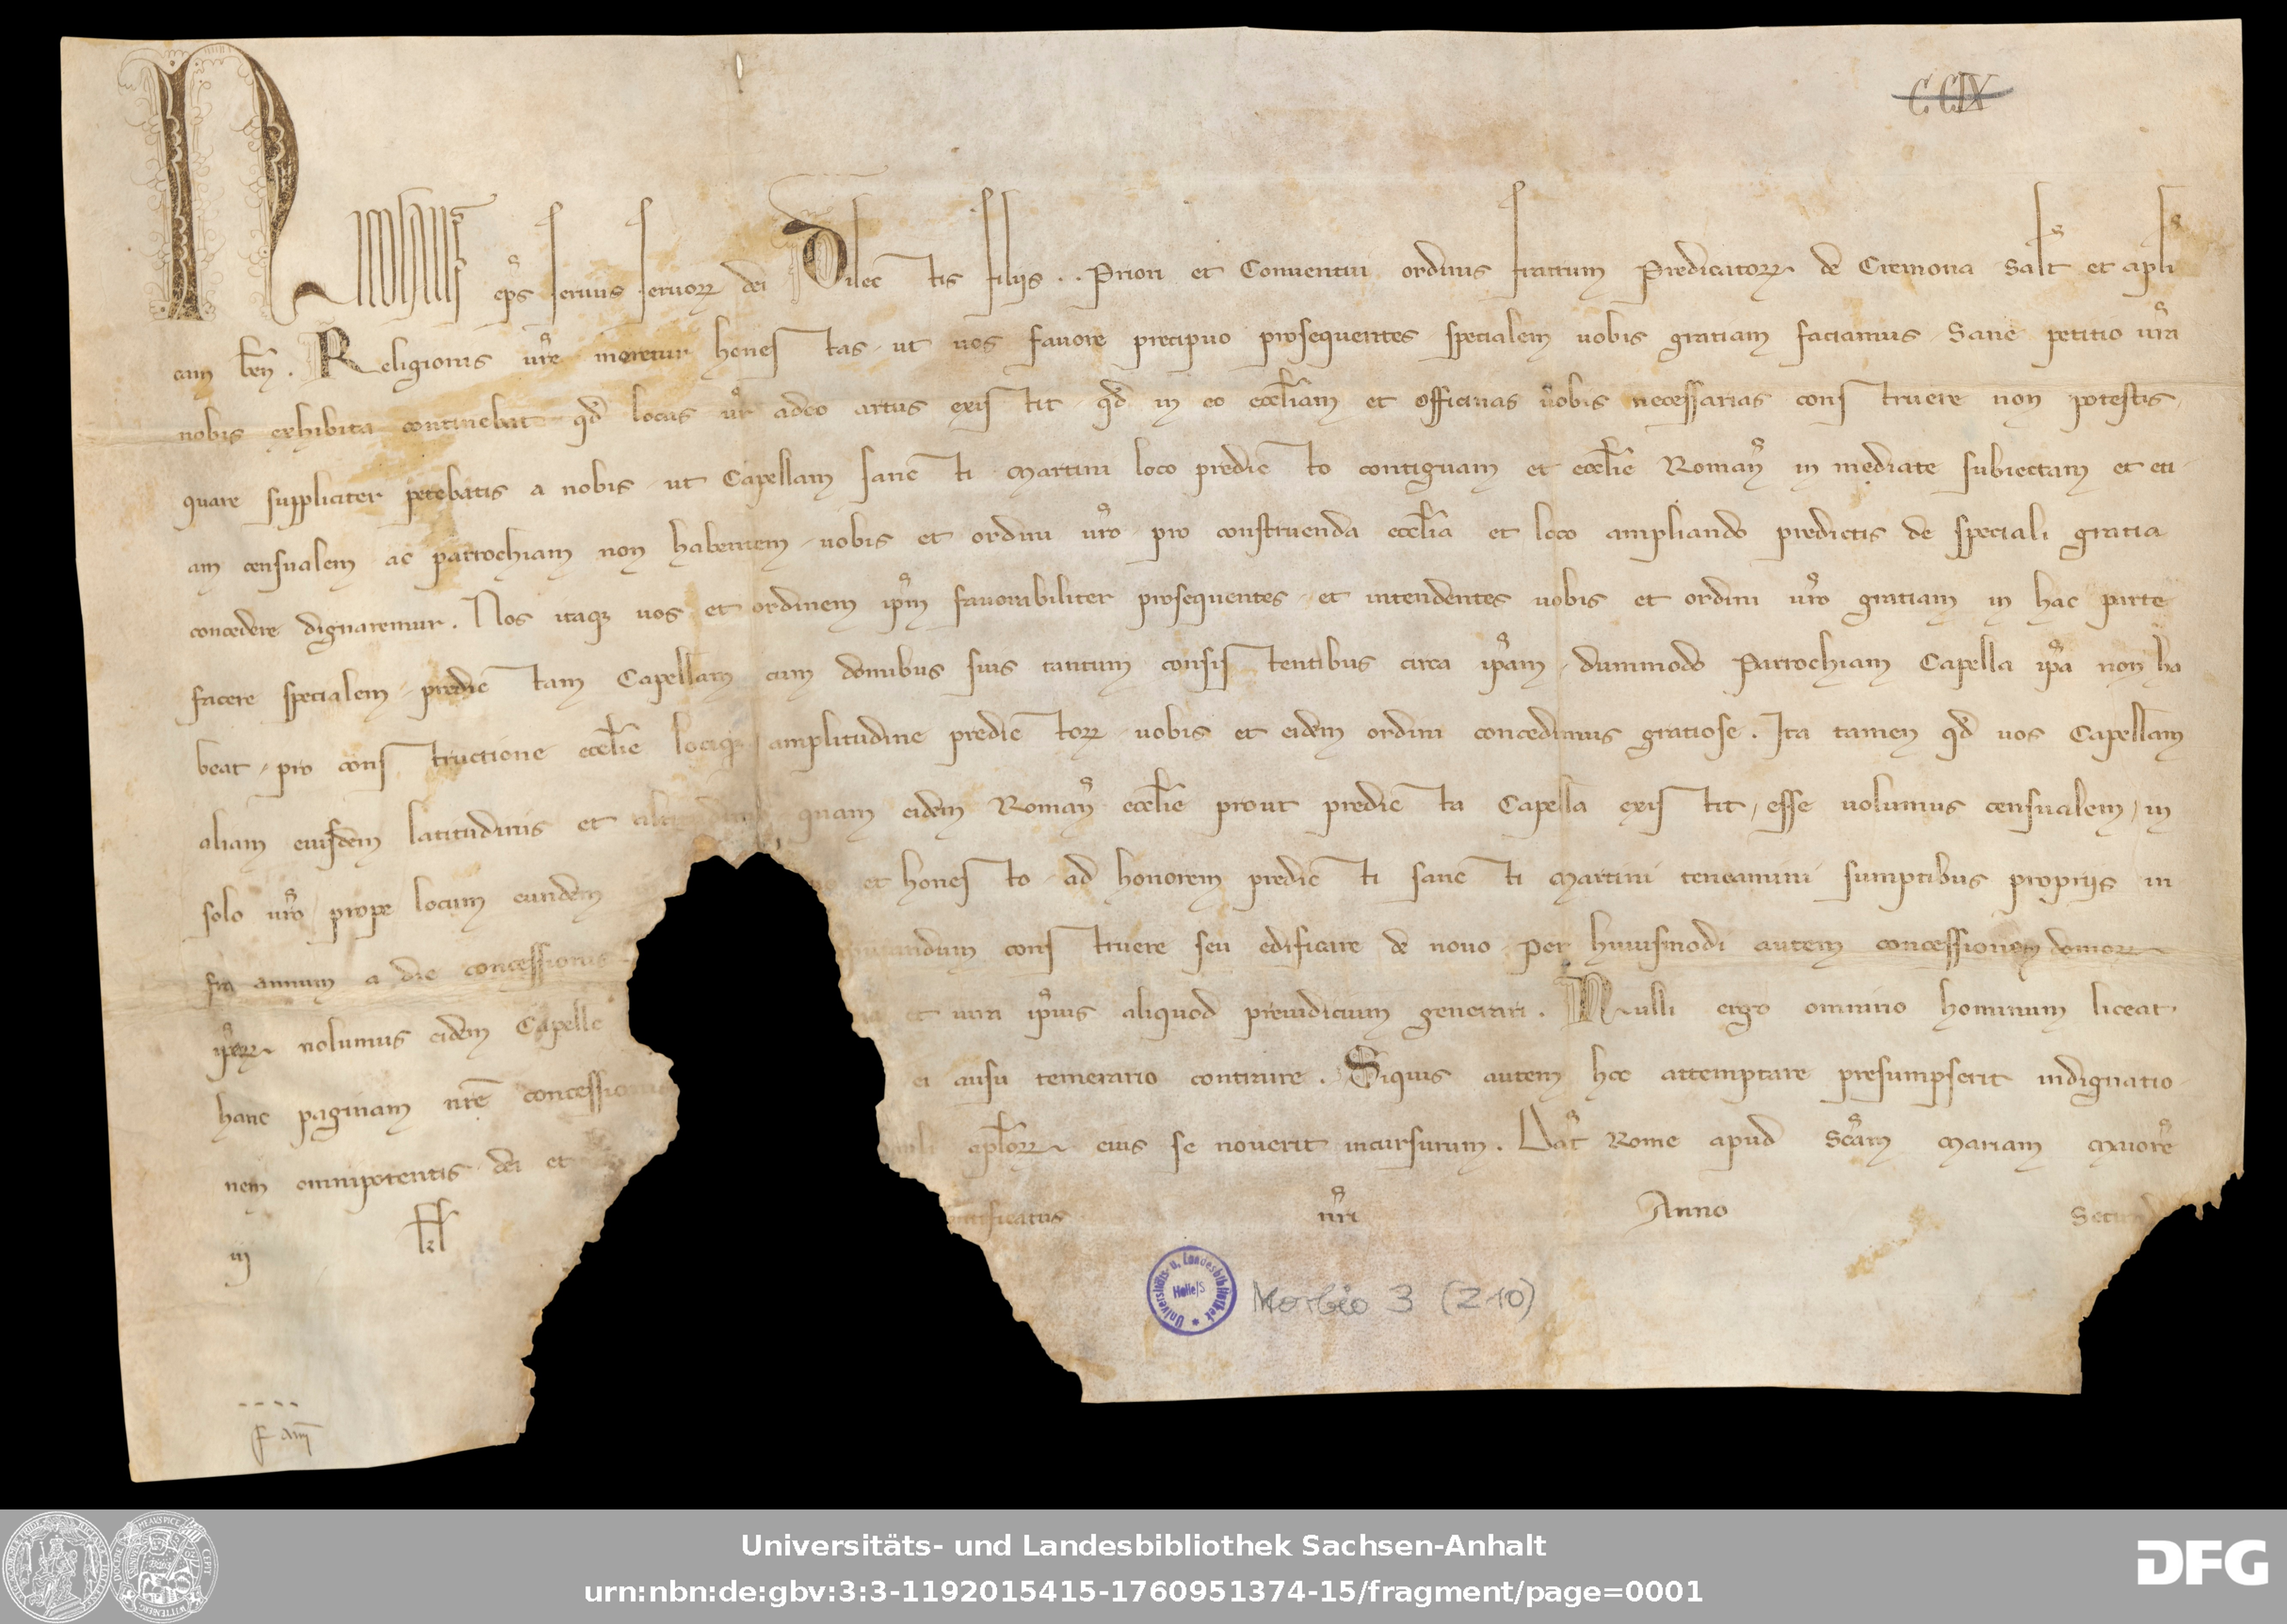 C.CIX
Nicolaus ep̄s seruus seruoꝝ dei Dilectis filijs .. Priori et Conuentui ordinis fratrum Predicatoꝝ de Cremona Salt̄ et apli
cam ben̄. Religionis ur̄e meretur honestas ut uos fauore precipuo prosequentes specialem uobis gratiam faciamus. Sane petitio ur̄a
nobis exhibita continebat qd̄ locus ur̄ adeo artus existit qd̄ in eo eccl̄iam et officinas uobis necessarias construere non potestis,
quare suppliciter petebatis a nobis ut Capellam sancti Martini loco predicto contiguam et eccl̄ie Roman̄ in mediate subiectam et eti-
am censualem ac parrochiam non habentem uobis et ordini ur̄o pro construenda eccl̄ia et loco ampliando predictis de speciali gratia
concedere dignaremur. Nos itaqꝫ uos et ordinem ip̄m fauorabiliter prosequentes et intendentes uobis et ordini ur̄o gratiam in hac parte
facere specialem, predictam Capellam cum domibus suis tantum consistentibus circa ip̄am, dummodo Parrochiam Capella ip̄a non ha
beat, pro constructione eccl̄ie lociqꝫ amplitudine predictoꝝ uobis et eidem ordini concedimus gratiose. Ita tamen qd̄ uos Capellam
aliam eiusdem latitudinis et quam eidem Roman̄ eccl̄ie prout predicta Capella existit, esse uolumus censualem, in
solo ur̄o prope locum eundem et honesto ad honorem predicti sancti Martini teneamini sumptibus proprijs in
fra annum a die concessionis construere seu edificare de nouo. Per huiusmodi autem concessionem domoꝝ
ip̄aꝝ nolumus eidem Capelle et iuri ip̄ius aliquod preiudicium generari. Nulli ergo omnino hominum liceat
hanc paginam nr̄e concessionis ei ausu temerario contraire. Siquis autem hoc attemptare presumpserit indignatio-
nem omnipotentis dei et apl̄oꝝ eius se nouerit incursurum. Dat̄ Rome apud Sc̄am Mariam Maiorē
iij pontificatus nr̄i Anno Secundo
Universitäts- u. Landesbibliothek Halle/S
Morbio 3 (210)
Universitäts- und Landesbibliothek Sachsen-Anhalt
urn:nbn:de:gbv:3:3-1192015415-1760951374-15/fragment/page=0001
DFG